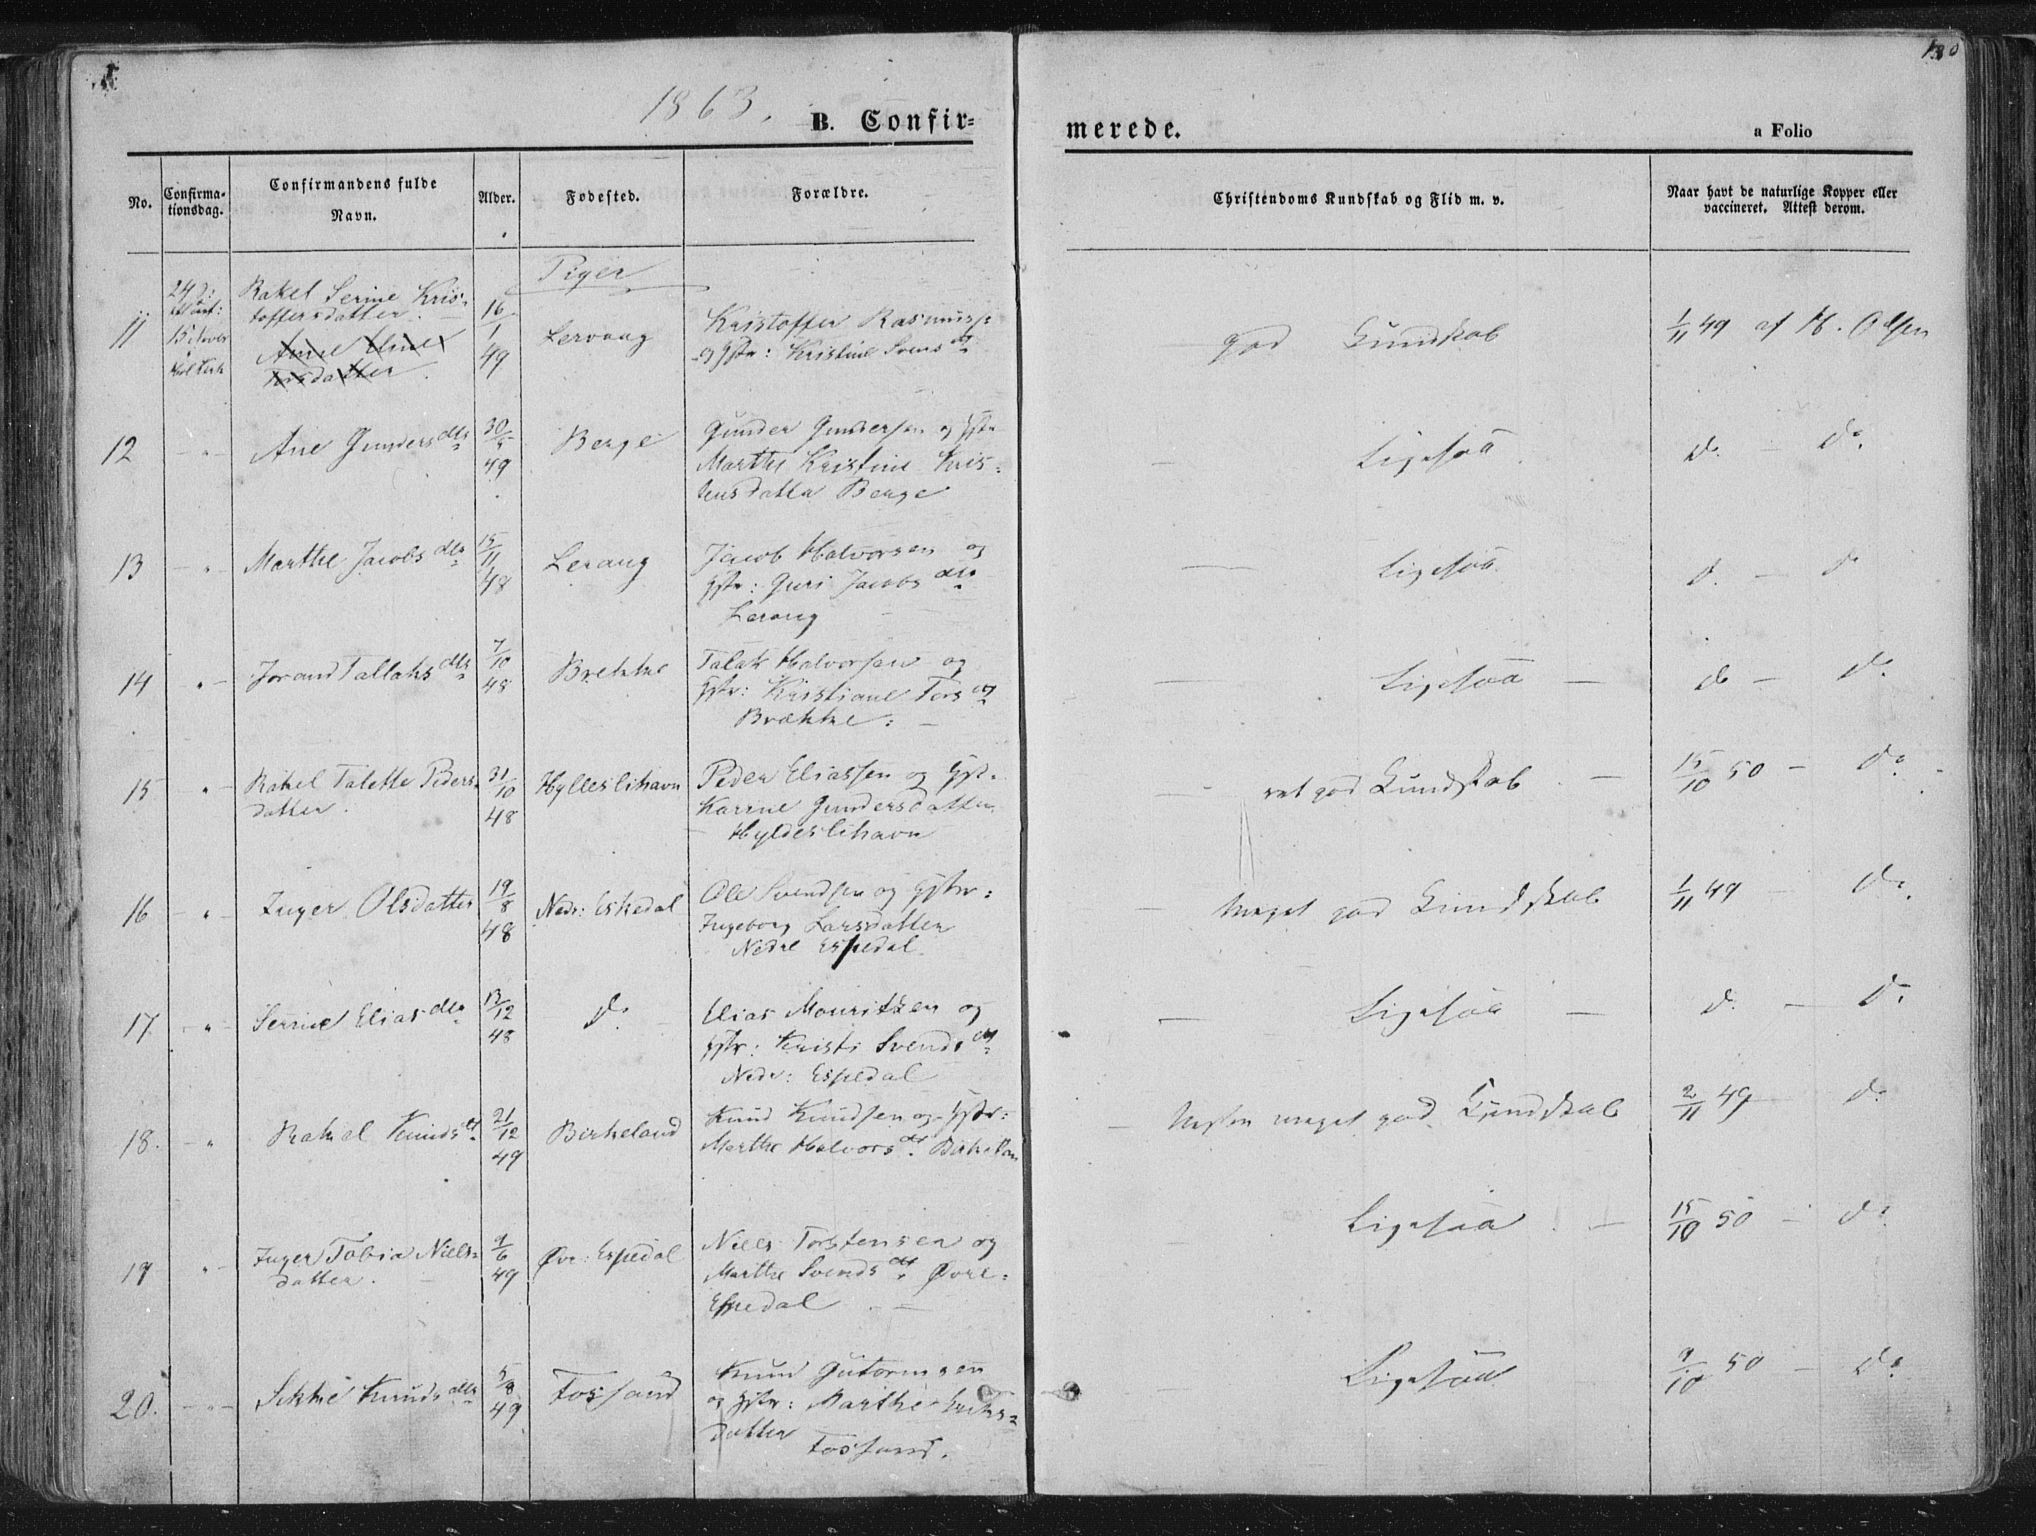 1863.
B. Confir=
merede.
a Folio
No.
Confirma-
tionsdag.
Confirmandens fulde
Navn.
Alder.
Fødested.
Forældre.
Christendoms Kundskab og Flid m. v.
Naar havt de naturlige Kopper eller
vaccineret. Attest derom.
Piger
11
Rakel Serine Kris-
toffersdatter.
16/1 49
Lervang
Kristoffer Rasmuss:
og Hstr: Kristine Svensdt
god Kundskab
1/11 49 af H. Olsen
12 - " -
Ane Gundersdtr
30/5 49
Berge
Gunder Gundersen og Hstr
Marthe Kristine
Berge
Ligesaa
do. - do.
13 - "
Marthe Jacobsdtr
15/11 48
Lerang
Jacob Halvorsen og
Hstr: Guri Jacobsdtr
Lerang
Ligesaa
do. - do
14 - " -
Jorand Tallaksdtr
7/10 48
Brekke
Talak Halvorsen og
Hstr: Kristiane Torsdt
Brække. -
Ligesaa -
do - do.
15 "
Rakel Talette Peders-
datter.
31/10 48
Hylleslihavn
Peder Eliassen og Hst.
Karine Gundersdatter
Hyldeslihavn
ret god Kundskab. -
15/10 50 - do.
16 - "
Inger Olsdatter
19/8 48
Nedr: Eskedal
Ole Svendsen og Hstr:
Ingeborg Larsdatter
Nedre Espedal
Meget god Kundskab
1/11 49 - do.
17. - " -
Serine Eliasdtr
13/12 48
do.
Elias Mouritzen og
Hstr: Kristi Svendsdt
Nedr: Espedal
Ligesaa -
do. - do.
18. "
Rakel Knudsdt.
21/12 49
Birkeland
Knud Knudsen og Hstr:
Marthe Halvorsdt.
Næsten meget god Kundskab
2/11 49 do.
19 "
Inger Tobia Niels-
datter.
9/6 49
Øvr: Espedal
Niels Torstensen og
Marthe Svendsdt. Øvre-
Espedal. -
Ligesaa. -
15/10 50 - do.
20. - " -
Sikke Knudsdtr
5/8 49
Fossand
Knud Gutormsen
og Hstr: Marthe
datter Fossand.
Ligesaa
9/10 50 - do.